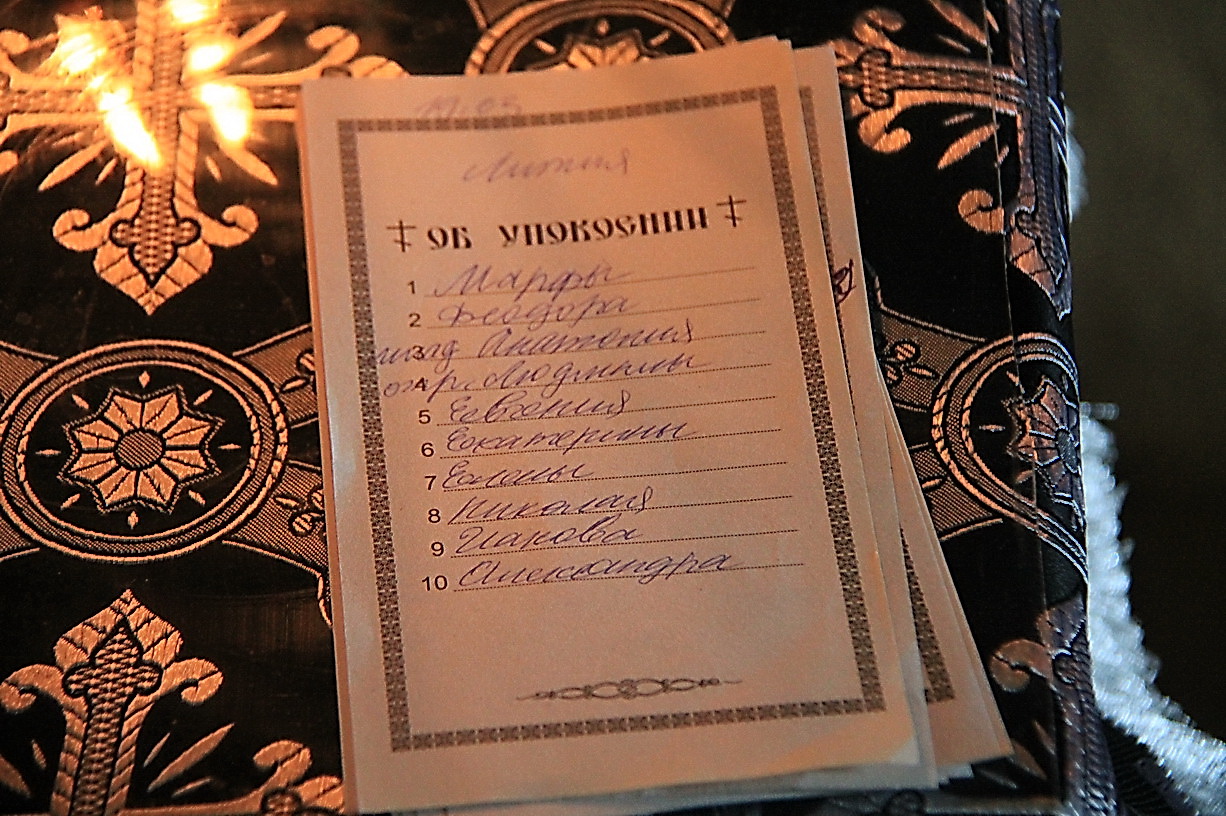 19.03
Лития
ОБ УПОКОЕНИИ
1 Марфы
2 Феодора
3 млад Анатолия
4 Людмилы
5 Евгения
6 Екатерины
7 Елены
8 Николая
9 Иакова
10 Александра